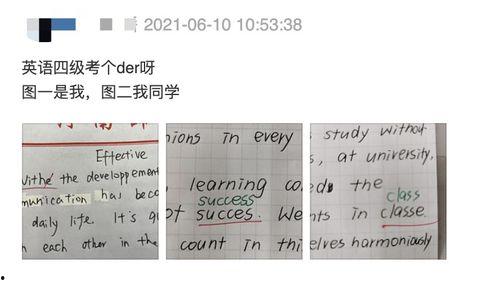 2021-06-10 10:53:38
英语四级考个der呀
图一是我，图二我同学
Effective
withe the developpement
munication has beco
daily life. It's
each other in the
ions in every
learning co
success
of succes. We
count in thi
study without
s, at university,
ed the
class
nts in classe
elves harmoniously